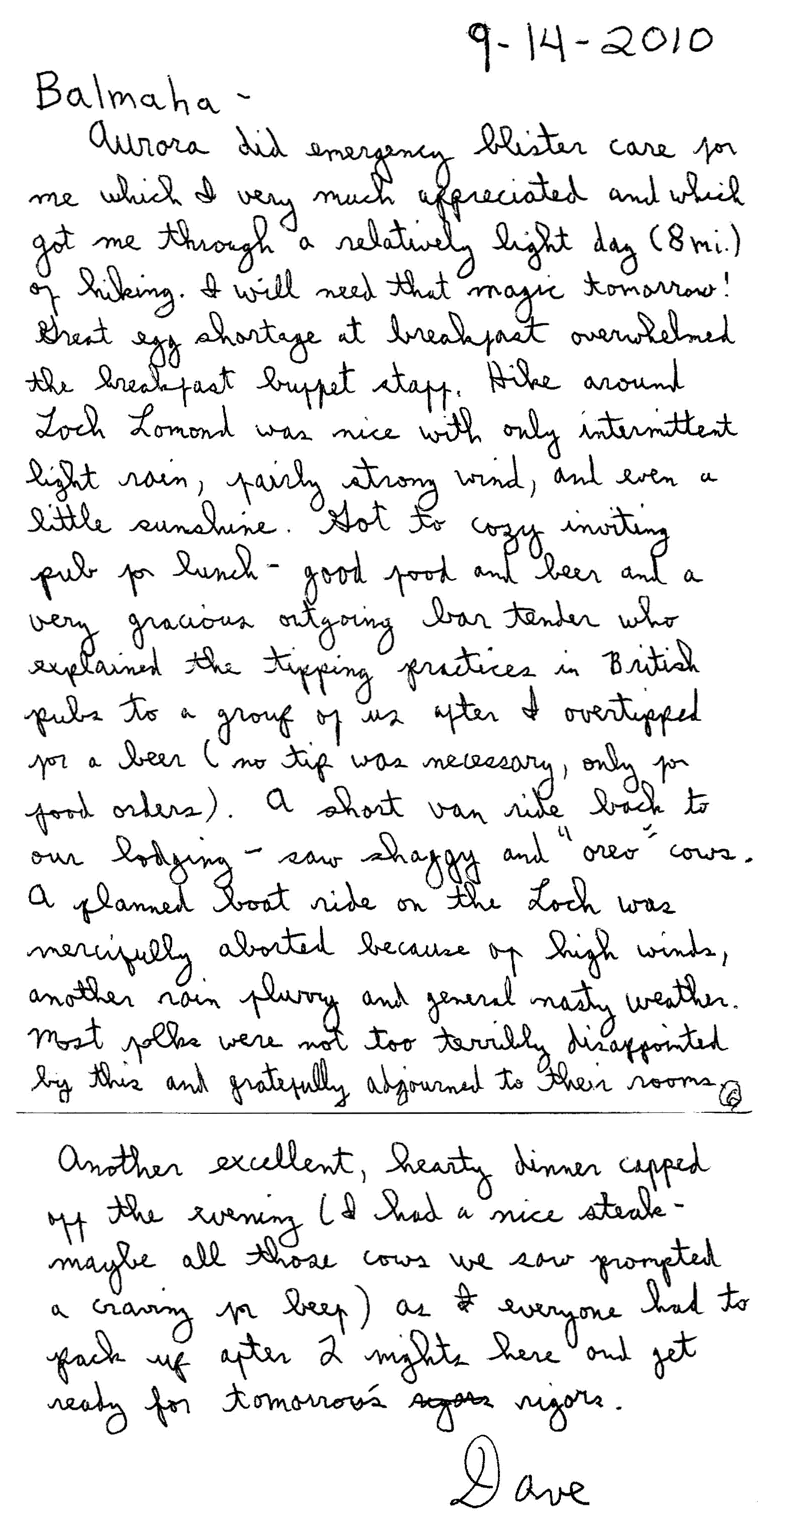 9-14-2010
Balmaha -
Aurora did emergency blister care for
me which I very much appreciated and which
got me through a relatively light day (8 mi.)
of hiking. I will need that magic tomorrow!
Great egg shortage at breakfast overwhelmed
the breakfast buffet staff. Hike around
Loch Lomond was nice with only intermittent
light rain, fairly strong wind, and even a
little sunshine. Got to cozy inviting
pub for lunch - good food and beer and a
very gracious outgoing bar tender who
explained the tipping practices in British
pubs to a group of us after I overtipped
for a beer (no tip was necessary, only for
food orders). A short van ride back to
our lodging - saw shaggy and "oreo" cows.
A planned boat ride on the Loch was
mercifully aborted because of high winds,
another rain flurry and general nasty weather.
Most folks were not too terribly disappointed
by this and gratefully adjourned to their rooms. 6
Another excellent, hearty dinner capped
off the evening (I had a nice steak -
maybe all those cows we saw prompted
a craving for beef) as I everyone had to
pack up after 2 nights here and get
ready for tomorrow's rigors rigors.
Dave